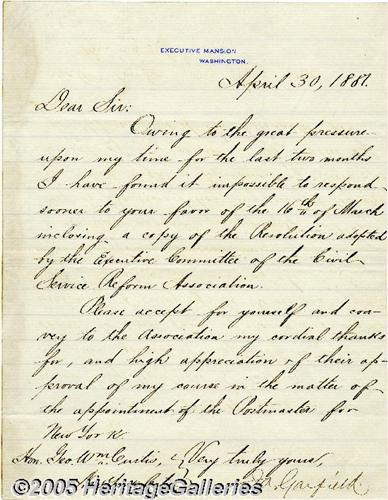 EXECUTIVE MANSION
WASHINGTON.
April 30, 1881.
Dear Sir:
Owing to the great pressure
upon my time for the last two months
I have found it impossible to respond
sooner to your favor of the 16th of March
inclosing a copy of the Resolution adopted
by the Executive Committee of the Civil
Service Reform Association.
Please accept for yourself and con-
vey to the Association my cordial thanks
for, and high appreciation of their ap-
proval of my course in the matter of
the appointment of the Postmaster for
New York.
Hon. Geo. Wm. Curtis, Very truly yours,
Garfield.
©2005 HeritageGalleries